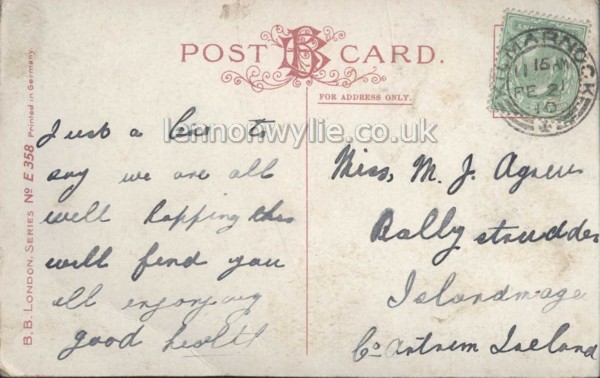 POST BB CARD.
FOR ADDRESS ONLY.
KILMARNOCK
11 15 AM
FE 21
10
lennonwylie.co.uk
B.B. LONDON, SERIES No E 358 Printed in Germany.
Just a line to
say we are all
well hopping this
will find you
all enjoying
good health
Miss, M. J. Agnew
Ballystrudder
Islandmagee
Co Antrim Ireland